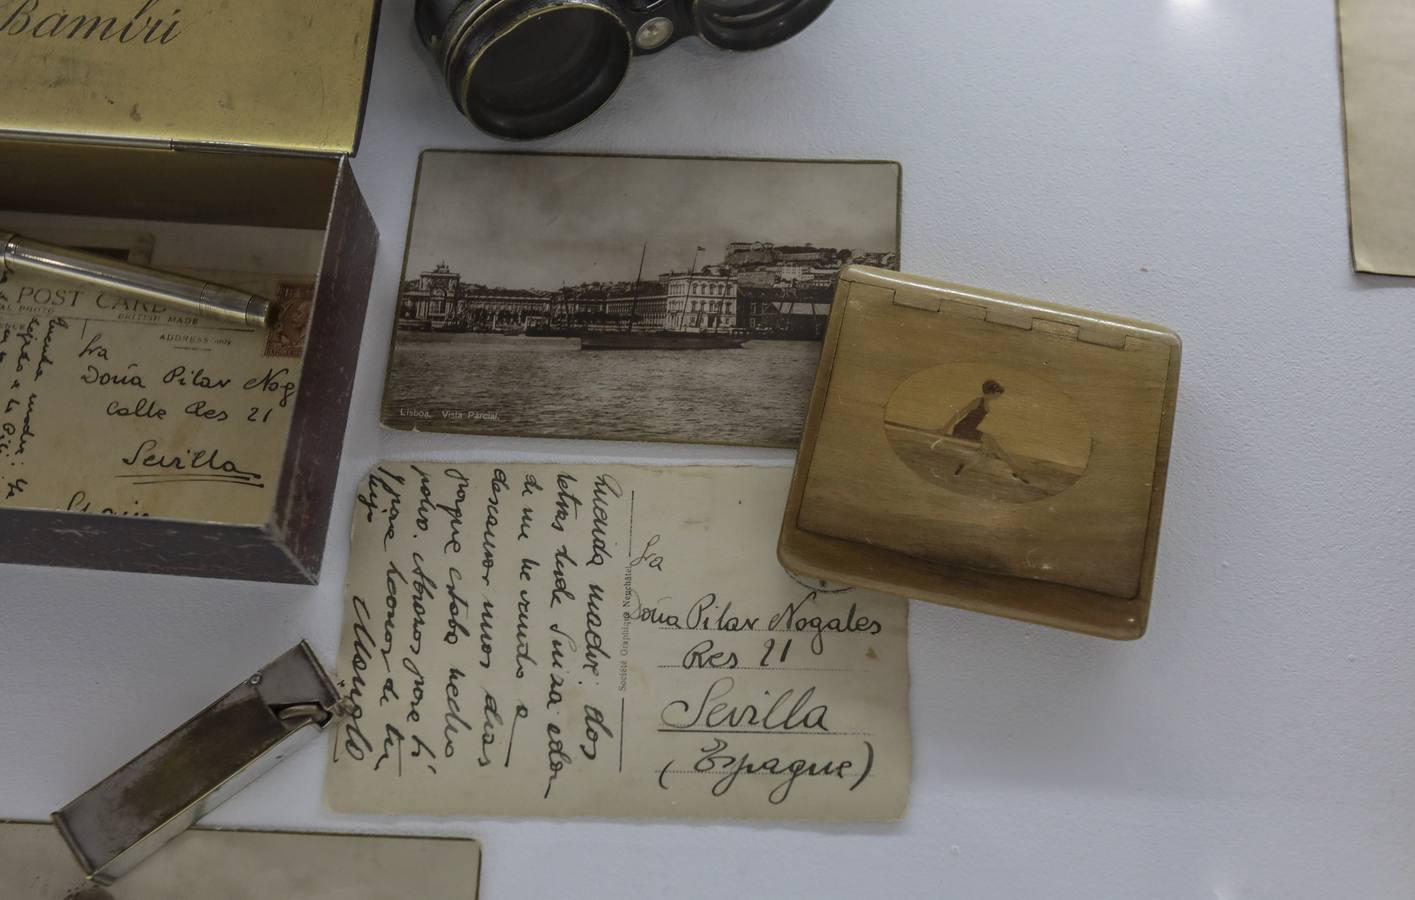 Bambú
POST CARD
BRITISH MADE
ADDRESS only
Sra
Doña Pilar Nog
Calle Res 21
Sevilla
Querida madre:
Lisboa. Vista Parcial.
Querida madre: dos
letras desde Suiza adon
de me he venido a
descansar unos dias
porque estaba hecho
polvo. Abrazos para ti
y para Leonor de tu
hijo
Manolo
Société Graphique Neuchâtel
Sra
Doña Pilar Nogales
Res 21
Sevilla
(Espagne)